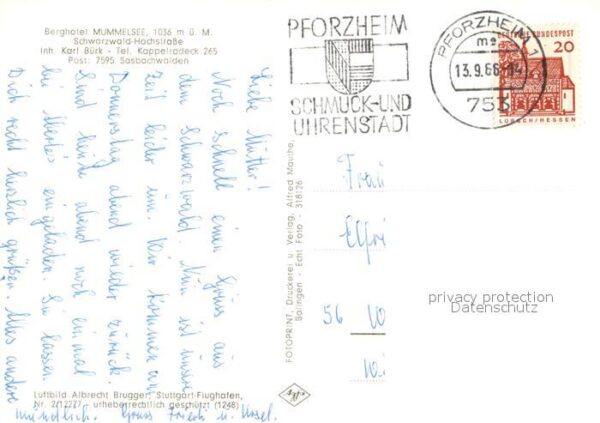 Berghotel MUMMELSEE, 1036 m ü. M.
Schwarzwald-Hochstraße
Inh. Karl Bürk - Tel. Kappelrodeck 265
Post: 7595 Sasbachwalden
Liebe Mutter!
Noch schnell einen Gruss aus
dem Schwarzwald. Nun ist unsere
Zeit leider um. Wir kommen am
Donnerstag abend wieder zurück.
Sind heute abend noch einmal
bei Mertes eingeladen. Sie lassen
Dich recht herzlich grüßen. Alles andere
mündlich. Gruss Friedh u. Ursel.
Luftbild Albrecht Brugger, Stuttgart-Flughafen,
Nr. 2/12277 urheberrechtlich geschützt (1248)
FOTOPRINT, Druckerei u. Verlag, Alfred Mauthe,
Balingen - Echt Foto - 318126
PFORZHEIM
SCHMUCK-UND
UHRENSTADT
PFORZHEIM 1
13.9.66
753
DEUTSCHE BUNDESPOST
20
LORSCH/HESSEN
Frau
Elfri
56 W
Wi
privacy protection
Datenschutz